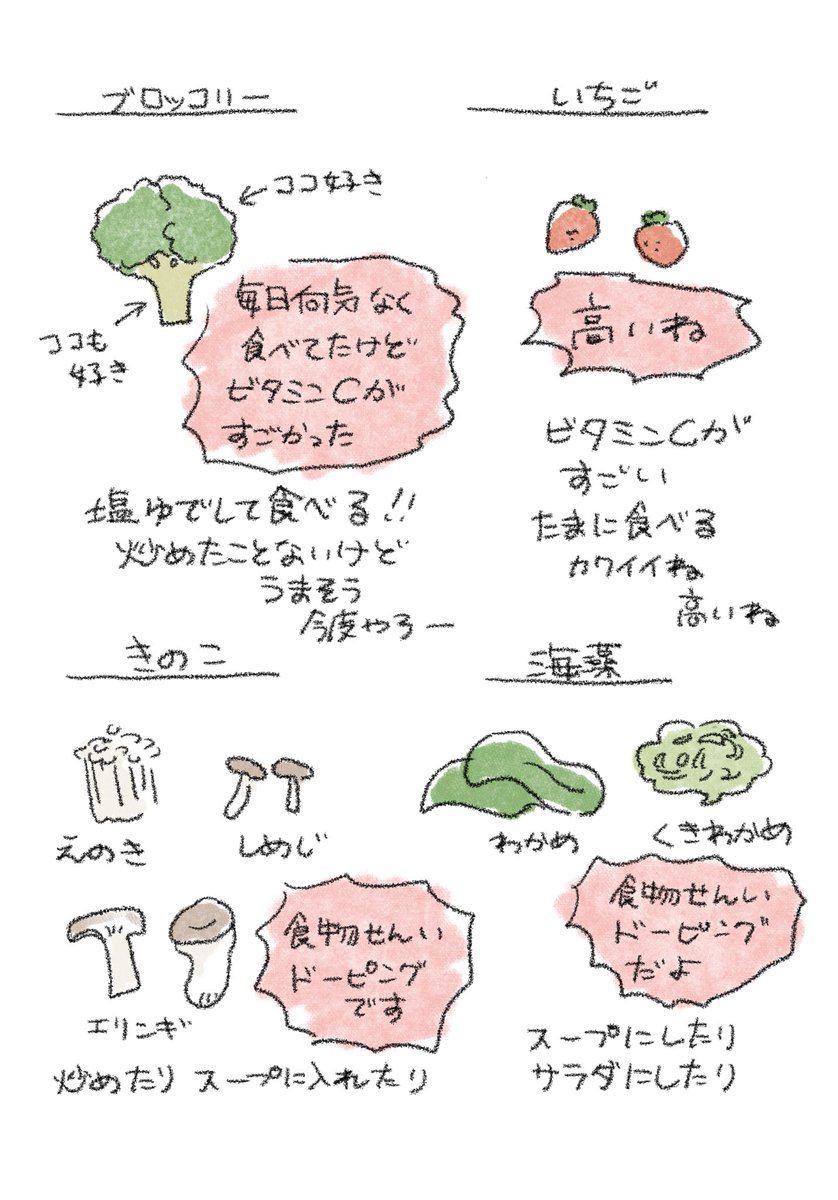 ブロッコリー
←ココ好き
ココも
好き
毎日何気なく
食べてたけど
ビタミンCが
すごかった
塩ゆでして食べる!!
炒めたことないけど
うまそう
今度やろー
いちご
高いね
ビタミンCが
すごい
たまに食べる
カワイイね
高いね
きのこ
えのき
しめじ
エリンギ
食物せんい
ドーピング
です
炒めたり スープに入れたり
海藻
わかめ
くきわかめ
食物せんい
ドーピング
だよ
スープにしたり
サラダにしたり